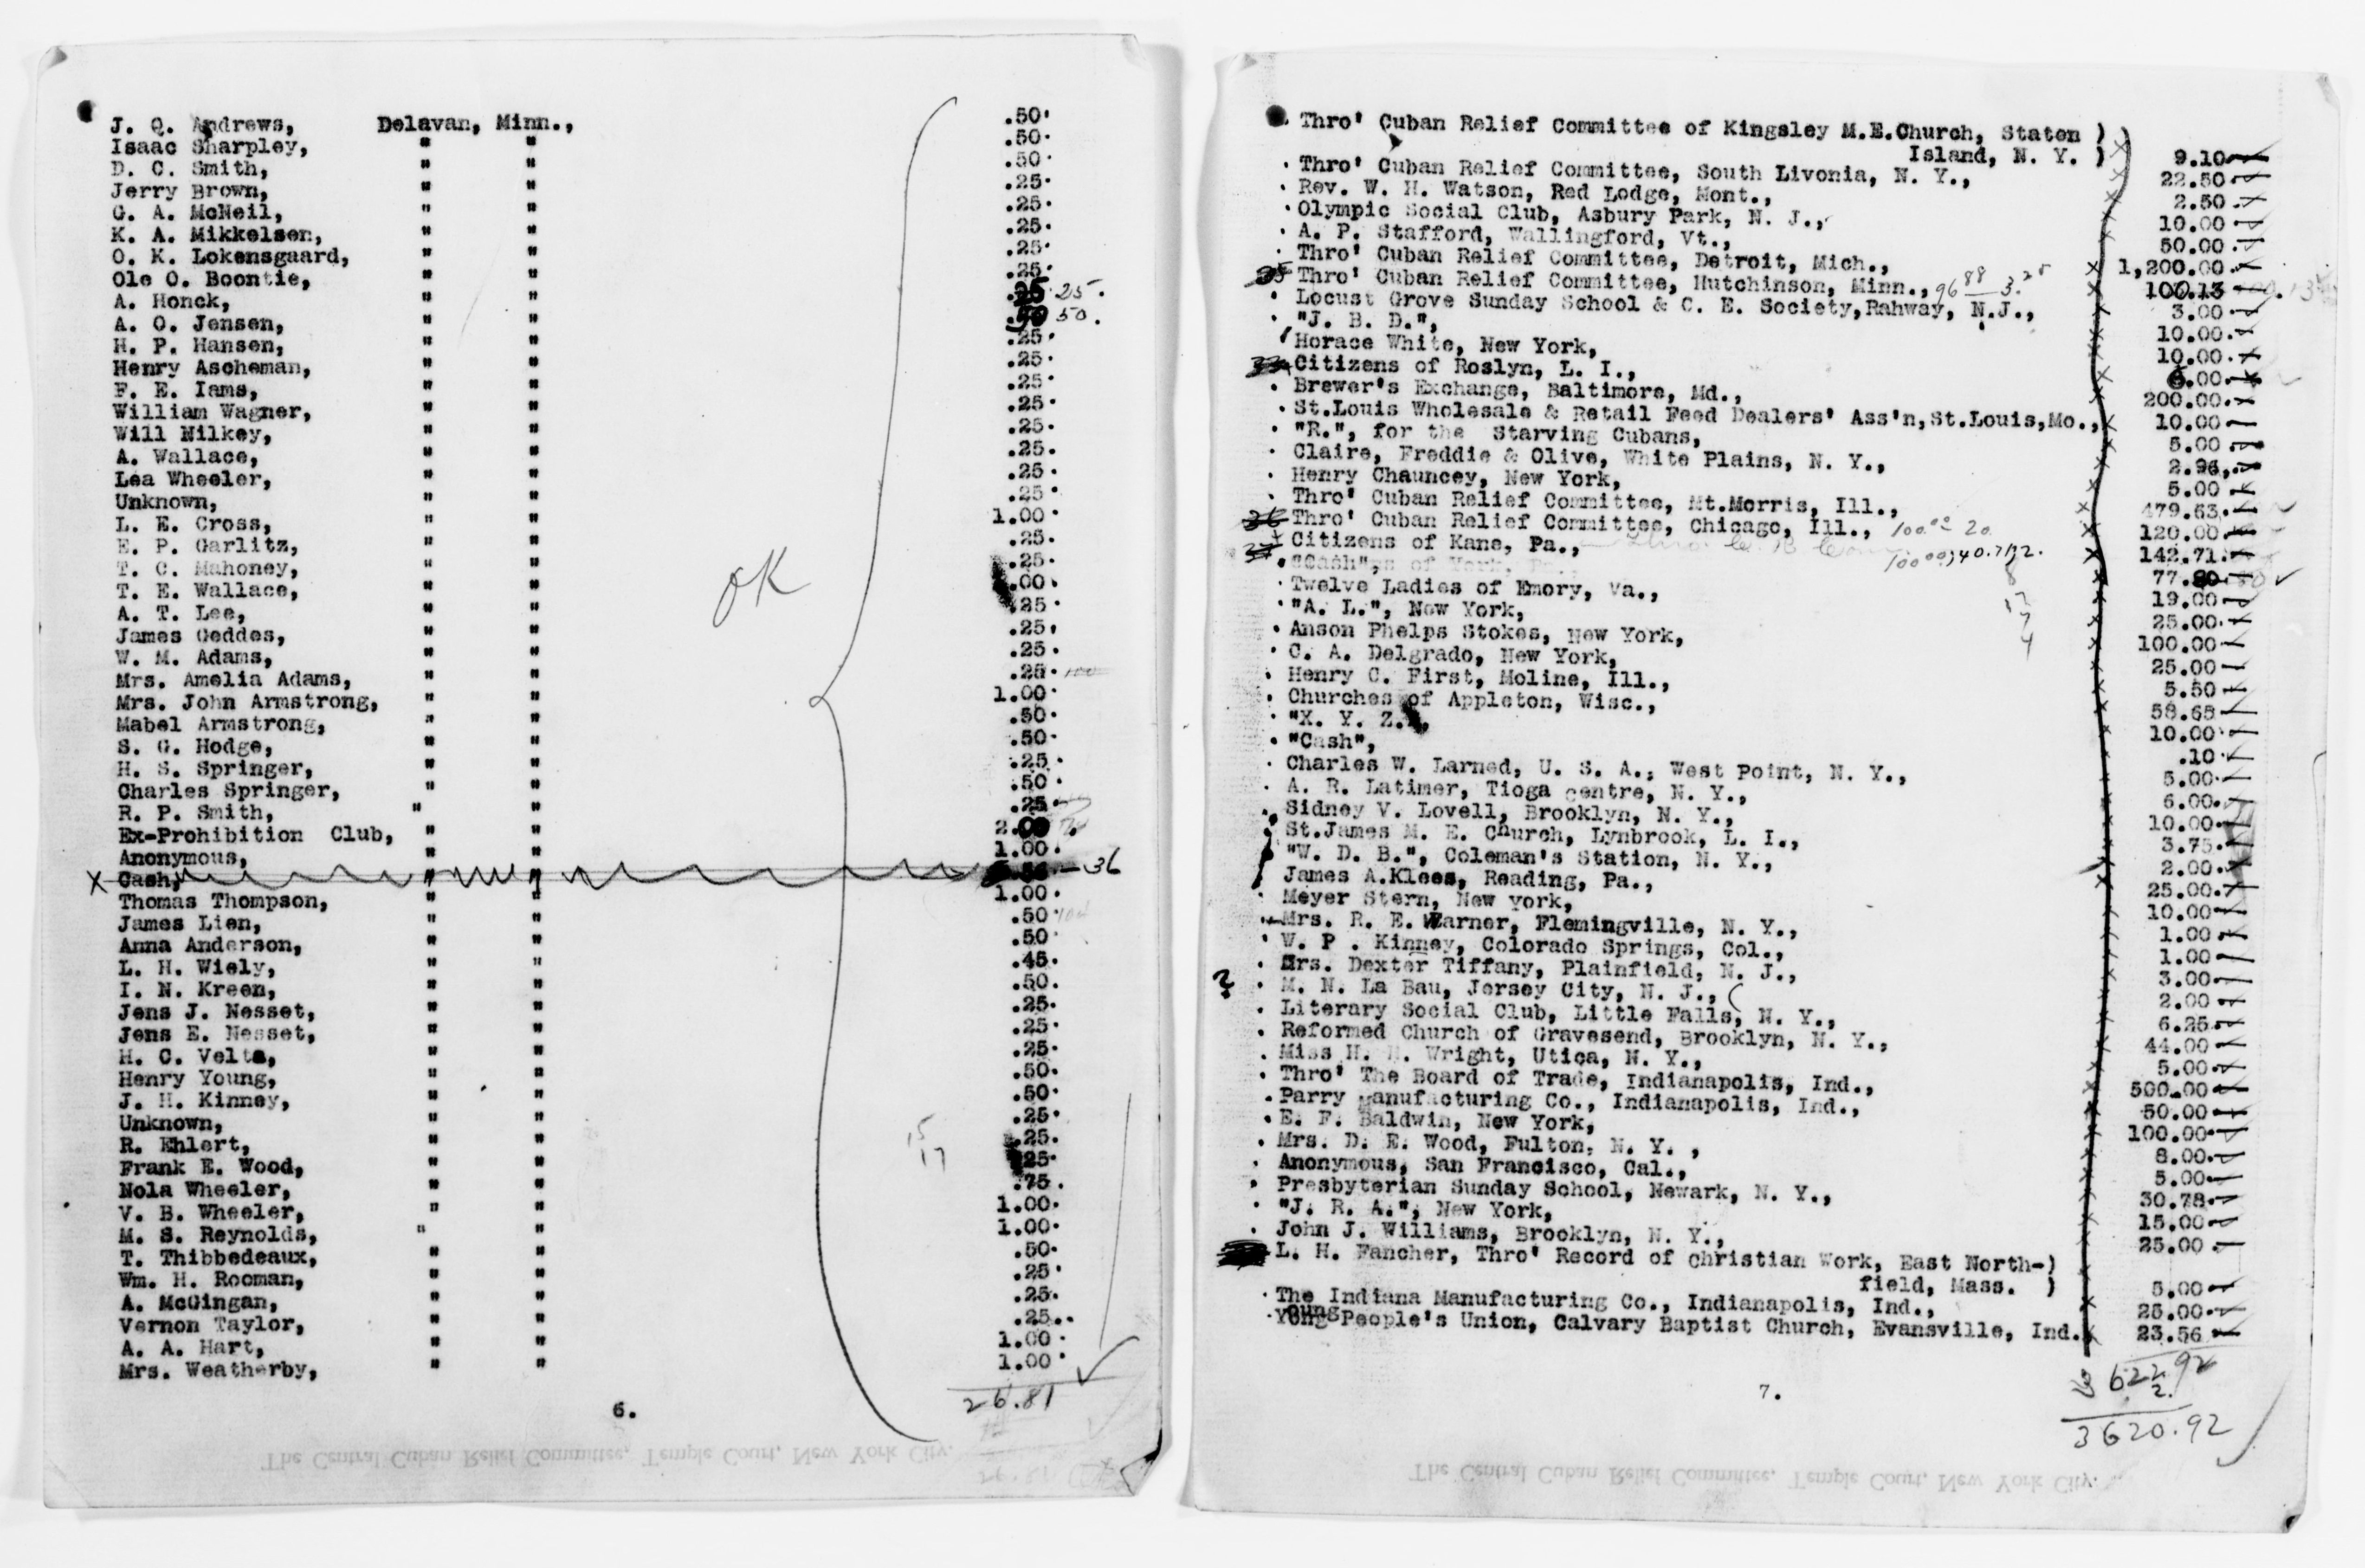 J. Q. Andrews, Delavan, Minn., .50
Isaac Sharpley, " " .50
D. C. Smith, " " .50
Jerry Brown, " " .25
G. A. McNeil, " " .25
K. A. Mikkelsen, " " .25
O. K. Lokensgaard, " " .25
Ole O. Boontie, " " .25
A. Honck, " " .25 25.
A. O. Jensen, " " .50 50.
H. P. Hansen, " " .25
Henry Ascheman, " " .25
F. E. Iams, " " .25
William Wagner, " " .25
Will Milkey, " " .25
A. Wallace, " " .25
Lea Wheeler, " " .25
Unknown, " " .25
L. E. Cross, " " 1.00
E. P. Garlitz, " " .25
T. C. Mahoney, " " .25
OK
T. E. Wallace, " " .00
A. T. Lee, " " .25
James Geddes, " " .25
W. M. Adams, " " .25
Mrs. Amelia Adams, " " .25 100
Mrs. John Armstrong, " " 1.00
Mabel Armstrong, " " .50
S. G. Hodge, " " .50
H. S. Springer, " " .25
Charles Springer, " " .50
R. P. Smith, " " .25
Ex-Prohibition Club, " " 2.00
Anonymous, " " 1.00
X Cash, " " 36
Thomas Thompson, " " 1.00
James Lien, " " .50
Anna Anderson, " " .50
L. H. Wiely, " " .45
I. N. Kreen, " " .50
Jens J. Nesset, " " .25
Jens E. Nesset, " " .25
H. C. Velta, " " .25
Henry Young, " " .50
J. H. Kinney, " " .50
Unknown, " " .25
15
R. Ehlert, " " .25
17
Frank E. Wood, " " .25
Nola Wheeler, " " .75
V. B. Wheeler, " " 1.00
M. S. Reynolds, " " 1.00
T. Thibbedeaux, " " .50
Wm. H. Rooman, " " .25
A. McGingan, " " .25
Vernon Taylor, " " .25
A. A. Hart, " " 1.00
Mrs. Weatherby, " " 1.00
26.81
6.
The Central Cuban Relief Committee, Temple Court, New York City.
Thro' Cuban Relief Committee of Kingsley M.E.Church, Staten )
Island, N. Y. ) 9.10
Thro' Cuban Relief Committee, South Livonia, N. Y., 22.50
Rev. W. H. Watson, Red Lodge, Mont., 2.50
Olympic Social Club, Asbury Park, N. J., 10.00
A. P. Stafford, Wallingford, Vt., 50.00
Thro' Cuban Relief Committee, Detroit, Mich., 1,200.00
35 Thro' Cuban Relief Committee, Hutchinson, Minn., 96 88 3.25 100.13
Locust Grove Sunday School & C. E. Society,Rahway, N.J., 3.00
"J. B. D.", 10.00
Horace White, New York, 10.00
Citizens of Roslyn, L. I., 6.00
Brewer's Exchange, Baltimore, Md., 200.00
St.Louis Wholesale & Retail Feed Dealers' Ass'n,St.Louis,Mo., 10.00
"R.", for the Starving Cubans, 5.00
Claire, Freddie & Olive, White Plains, N. Y., 2.96
Henry Chauncey, New York, 5.00
Thro' Cuban Relief Committee, Mt.Morris, Ill., 479.63
36 Thro' Cuban Relief Committee, Chicago, Ill., 100.00 20. 120.00
Citizens of Kane, Pa., 142.71
"Cash", 77.80
Twelve Ladies of Emory, Va., 19.00
"A. L.", New York, 25.00
Anson Phelps Stokes, New York, 100.00
C. A. Delgrado, New York, 25.00
Henry C. First, Moline, Ill., 5.50
Churches of Appleton, Wisc., 58.65
"X. Y. Z.", 10.00
"Cash", .10
Charles W. Larned, U. S. A., West Point, N. Y., 5.00
A. R. Latimer, Tioga centre, N. Y., 6.00
Sidney V. Lovell, Brooklyn, N. Y., 10.00
St.James M. E. Church, Lynbrook, L. I., 3.75
"W. D. B.", Coleman's Station, N. Y., 2.00
James A.Klees, Reading, Pa., 25.00
Meyer Stern, New York, 10.00
Mrs. R. E. Warner, Flemingville, N. Y., 1.00
W. P . Kinney, Colorado Springs, Col., 1.00
Mrs. Dexter Tiffany, Plainfield, N. J., 3.00
? M. N. La Bau, Jersey City, N. J., 2.00
Literary Social Club, Little Falls, N. Y., 6.25
Reformed Church of Gravesend, Brooklyn, N. Y., 44.00
Miss H. H. Wright, Utica, N. Y., 5.00
Thro' The Board of Trade, Indianapolis, Ind., 500.00
Parry Manufacturing Co., Indianapolis, Ind., 50.00
E. F. Baldwin, New York, 100.00
Mrs. D. E. Wood, Fulton, N. Y. , 8.00
Anonymous, San Francisco, Cal., 5.00
Presbyterian Sunday School, Newark, N. Y., 30.78
"J. R. A.", New York, 15.00
John J. Williams, Brooklyn, N. Y., 25.00
L. H. Fancher, Thro' Record of Christian Work, East North-)
field, Mass. ) 5.00
The Indiana Manufacturing Co., Indianapolis, Ind., 25.00
Young People's Union, Calvary Baptist Church, Evansville, Ind. 23.56
3622.92
2.
7.
3620.92
The Central Cuban Relief Committee, Temple Court, New York City.